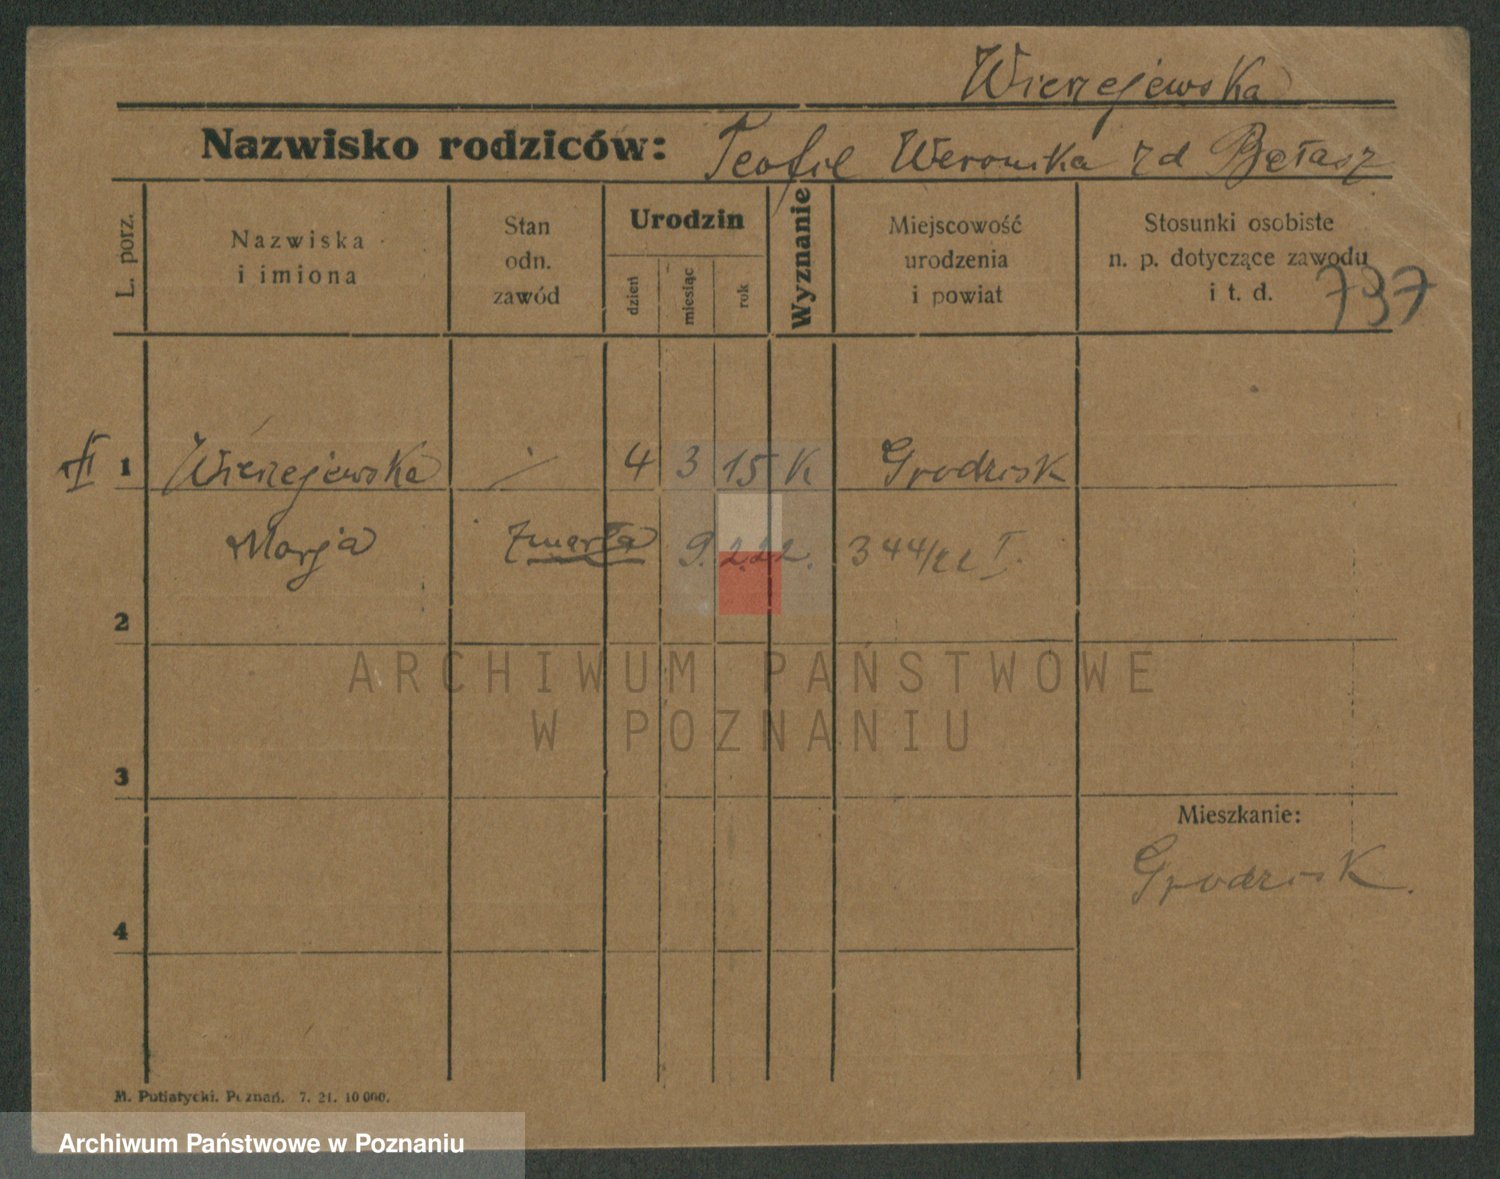 Wierzejewska
Nazwisko rodziców: Teofil Weronika zd Bętasz
L. porz.
Nazwiska
i imiona
Stan
odn.
zawód
Urodzin
dzień
miesiąc
rok
Wyznanie
Miejscowość
urodzenia
i powiat
Stosunki osobiste
n. p. dotyczące zawodu
i t. d.
737
1 Wierzejewska 4 3 15 K Grodzisk
Marja zmarła 9. 2.22. 344/22 I.
2
3
Mieszkanie:
Grodzisk.
4
M. Putiatycki. Poznań. 7. 21. 10 000.
ARCHIWUM PAŃSTWOWE
W POZNANIU
Archiwum Państwowe w Poznaniu